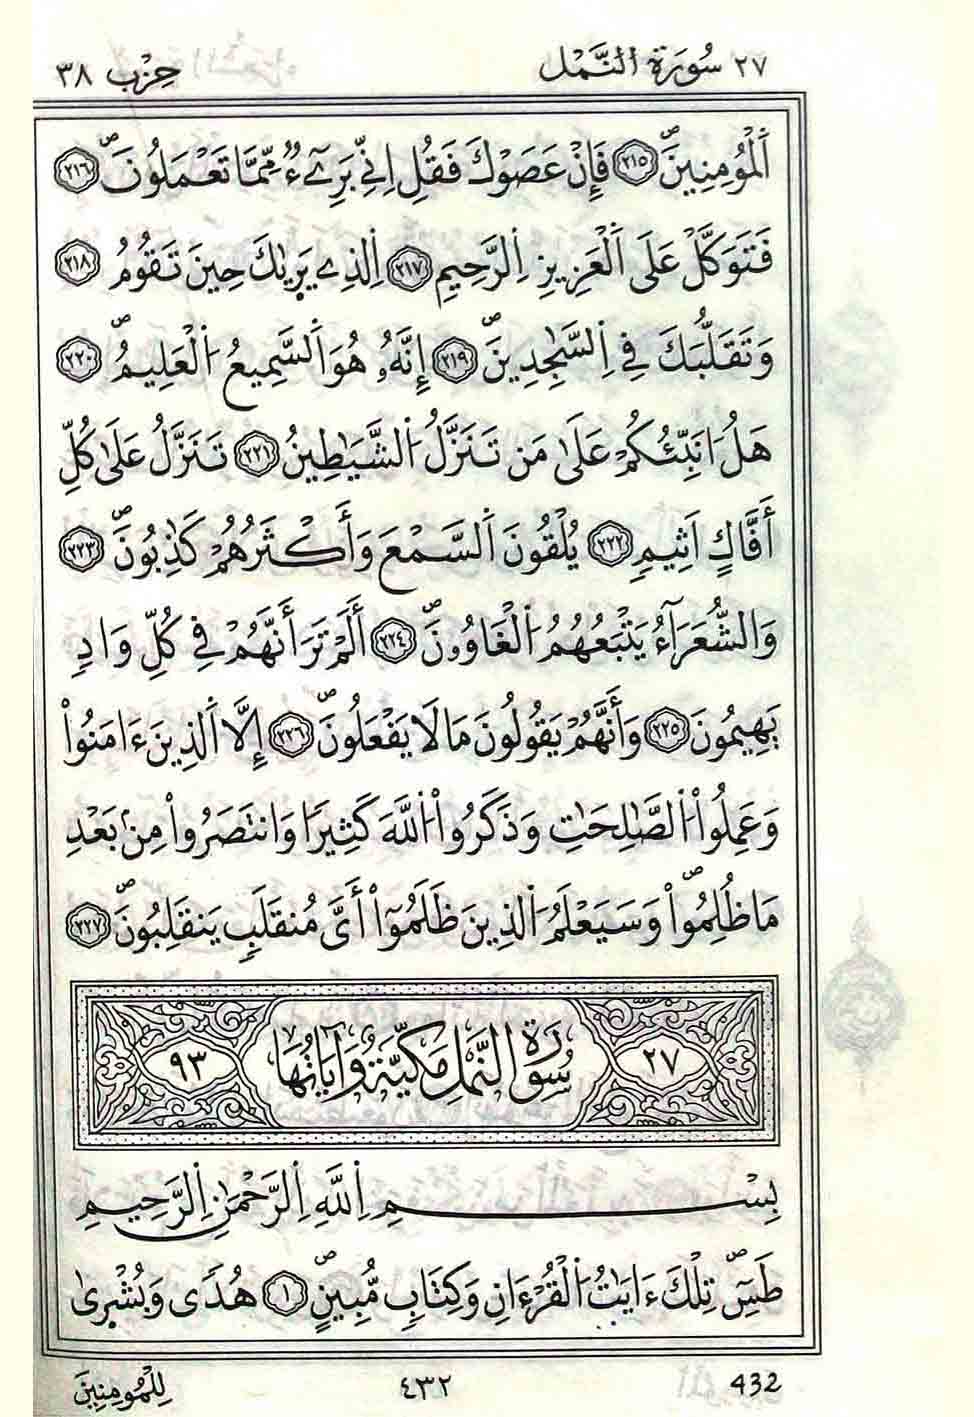 ٢٧ سُورَةُ النَّمْلِ حِزْب ٣٨
اَ۬لْمُومِنِينَۖ ٢١٥ فَإِنْ عَصَوْكَ فَقُلِ اِنِّے بَرِےٓءٞ مِّمَّا تَعْمَلُونَۖ ٢١٦
فَتَوَكَّلْ عَلَى اَ۬لْعَزِيزِ اِ۬لرَّحِيمِ ٢١٧ اِ۬لذِے يَر۪يٰكَ حِينَ تَقُومُ ٢١٨
وَتَقَلُّبَكَ فِے اِ۬لسَّٰجِدِينَۖ ٢١٩ إِنَّهُۥ هُوَ اَ۬لسَّمِيعُ اُ۬لْعَلِيمُۖ ٢٢٠
هَلُ ا۟نَبِّئُكُمْ عَلَىٰ مَن تَنَزَّلُ اُ۬لشَّيَٰطِينُ ٢٢١ تَنَزَّلُ عَلَىٰ كُلِّ
أَفَّاكٍ اَثِيمٖ ٢٢٢ يُلْقُونَ اَ۬لسَّمْعَ وَأَكْثَرُهُمْ كَٰذِبُونَۖ ٢٢٣
وَالشُّعَرَآءُ يَتْبَعُهُمُ اُ۬لْغَاوُۥنَۖ ٢٢٤ أَلَمْ تَرَ أَنَّهُمْ فِے كُلِّ وَادٖ
يَهِيمُونَ ٢٢٥ وَأَنَّهُمْ يَقُولُونَ مَا لَا يَفْعَلُونَۖ ٢٢٦ إِلَّا اَ۬لذِينَ ءَامَنُواْ
وَعَمِلُواْ اُ۬لصَّٰلِحَٰتِ وَذَكَرُواْ اُ۬للَّهَ كَثِيراٗ وَانتَصَرُواْ مِنۢ بَعْدِ
مَا ظُلِمُواْۖ وَسَيَعْلَمُ اُ۬لذِينَ ظَلَمُوٓاْ أَيَّ مُنقَلَبٖ يَنقَلِبُونَۖ ٢٢٧
٢٧ سُورَةُ النَّمْلِ مَكِّيَّةٌ وَآيَاتُهَا ٩٣
بِسْمِ اِ۬للَّهِ اِ۬لرَّحْمَٰنِ اِ۬لرَّحِيمِ
طَسِٓۖ تِلْكَ ءَايَٰتُ اُ۬لْقُرْءَانِ وَكِتَابٖ مُّبِينٍۖ ١ هُدىٗ وَبُشْر۪ىٰ
لِلْمُومِنِينَ ٤٣٢ 432